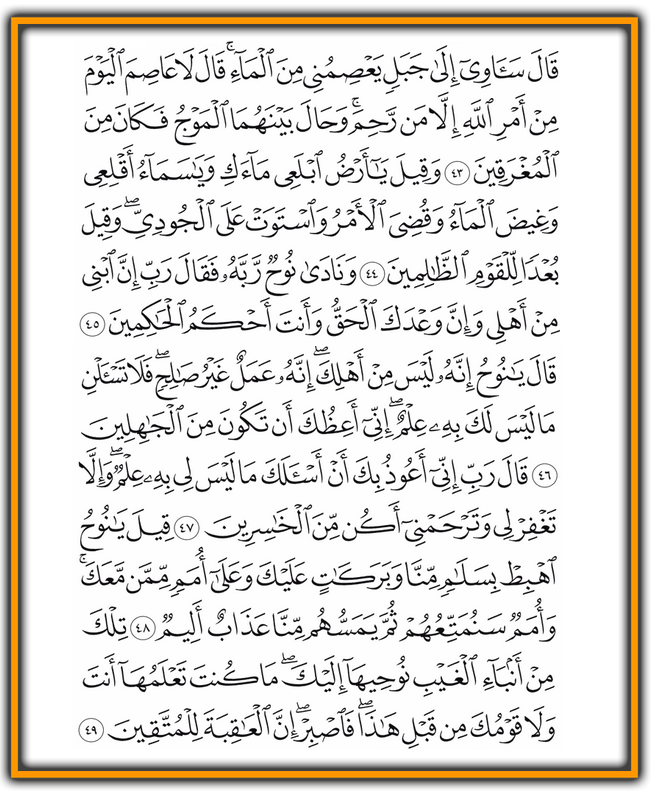 قَالَ سَـَٔاوِىٓ إِلَىٰ جَبَلٖ يَعۡصِمُنِى مِنَ ٱلۡمَآءِۚ قَالَ لَا عَاصِمَ ٱلۡيَوۡمَ
مِنۡ أَمۡرِ ٱللَّهِ إِلَّا مَن رَّحِمَۚ وَحَالَ بَيۡنَهُمَا ٱلۡمَوۡجُ فَكَانَ مِنَ
ٱلۡمُغۡرَقِينَ ٤٣ وَقِيلَ يَـٰٓأَرۡضُ ٱبۡلَعِى مَآءَكِ وَيَـٰسَمَآءُ أَقۡلِعِى
وَغِيضَ ٱلۡمَآءُ وَقُضِىَ ٱلۡأَمۡرُ وَٱسۡتَوَتۡ عَلَى ٱلۡجُودِىِّۖ وَقِيلَ
بُعۡدٗا لِّلۡقَوۡمِ ٱلظَّـٰلِمِينَ ٤٤ وَنَادَىٰ نُوحٞ رَّبَّهُۥ فَقَالَ رَبِّ إِنَّ ٱبۡنِى
مِنۡ أَهۡلِى وَإِنَّ وَعۡدَكَ ٱلۡحَقُّ وَأَنتَ أَحۡكَمُ ٱلۡحَـٰكِمِينَ ٤٥
قَالَ يَـٰنُوحُ إِنَّهُۥ لَيۡسَ مِنۡ أَهۡلِكَۖ إِنَّهُۥ عَمَلٌ غَيۡرُ صَـٰلِحٖۖ فَلَا تَسۡـَٔلۡنِ
مَا لَيۡسَ لَكَ بِهِۦ عِلۡمٌۖ إِنِّىٓ أَعِظُكَ أَن تَكُونَ مِنَ ٱلۡجَـٰهِلِينَ
٤٦ قَالَ رَبِّ إِنِّىٓ أَعُوذُ بِكَ أَنۡ أَسۡـَٔلَكَ مَا لَيۡسَ لِى بِهِۦ عِلۡمٞۖ وَإِلَّا
تَغۡفِرۡ لِى وَتَرۡحَمۡنِىٓ أَكُن مِّنَ ٱلۡخَـٰسِرِينَ ٤٧ قِيلَ يَـٰنُوحُ
ٱهۡبِطۡ بِسَلَـٰمٖ مِّنَّا وَبَرَكَـٰتٍ عَلَيۡكَ وَعَلَىٰٓ أُمَمٖ مِّمَّن مَّعَكَۚ
وَأُمَمٞ سَنُمَتِّعُهُمۡ ثُمَّ يَمَسُّهُم مِّنَّا عَذَابٌ أَلِيمٞ ٤٨ تِلۡكَ
مِنۡ أَنۢبَآءِ ٱلۡغَيۡبِ نُوحِيهَآ إِلَيۡكَۖ مَا كُنتَ تَعۡلَمُهَآ أَنتَ
وَلَا قَوۡمُكَ مِن قَبۡلِ هَـٰذَاۖ فَٱصۡبِرۡۖ إِنَّ ٱلۡعَـٰقِبَةَ لِلۡمُتَّقِينَ ٤٩